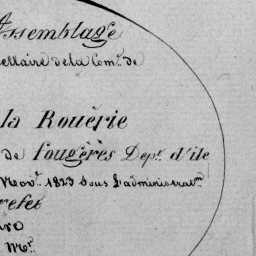 Assemblage
ellaire de la Com.e de
la Rouërie
de fougères Dep.t d'ile
Nov.re 1823 sous l'administrat.on
refet
M.r